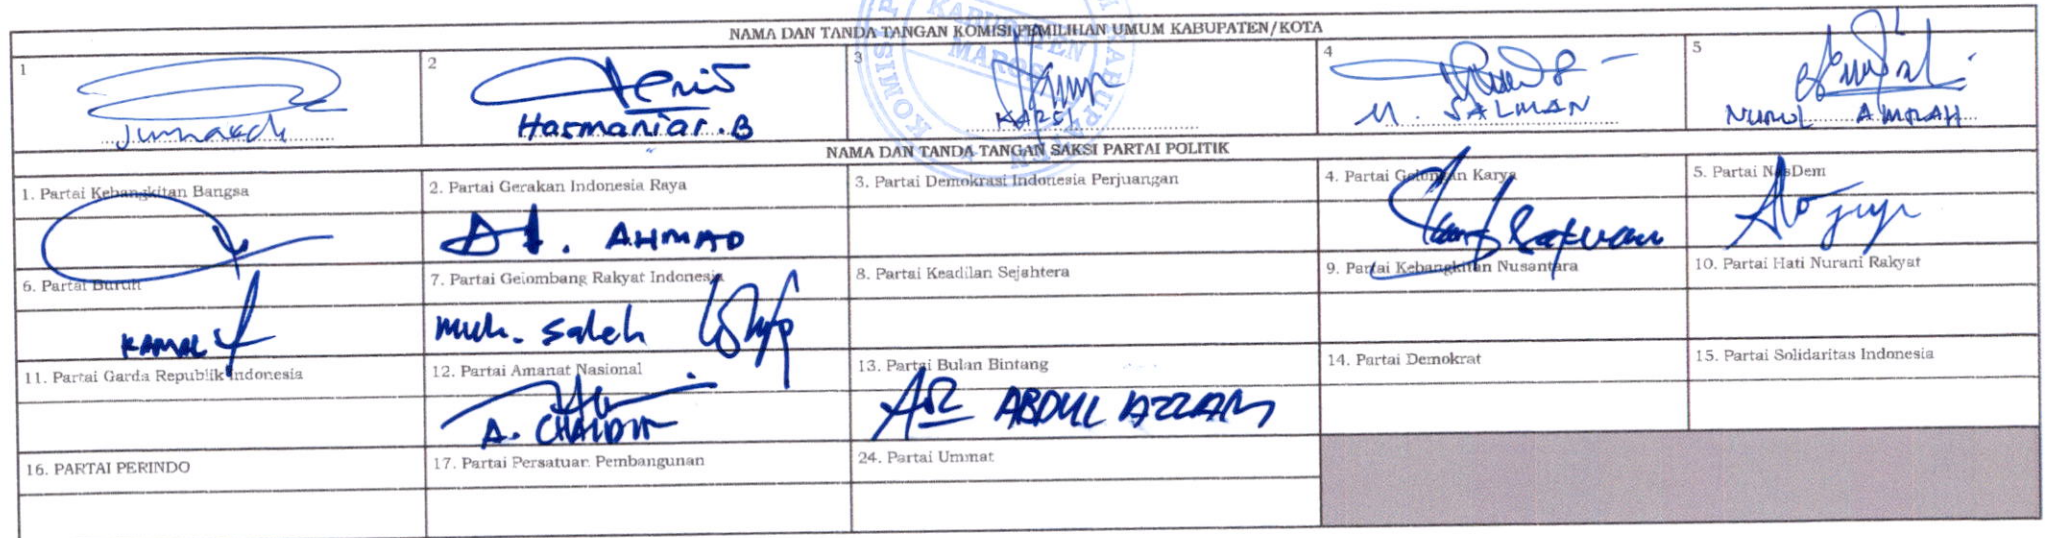 NAMA DAN TANDA TANGAN KOMISI PEMILIHAN UMUM KABUPATEN/KOTA
1 2 3 4 5
Junaedi Hasmaniar.B KARSI M. SALMAN NURUL AMRAH
NAMA DAN TANDA TANGAN SAKSI PARTAI POLITIK
1. Partai Kebangkitan Bangsa 2. Partai Gerakan Indonesia Raya 3. Partai Demokrasi Indonesia Perjuangan 4. Partai Golongan Karya 5. Partai NasDem
AHMAD
6. Partai Buruh 7. Partai Gelombang Rakyat Indonesia 8. Partai Keadilan Sejahtera 9. Partai Kebangkitan Nusantara 10. Partai Hati Nurani Rakyat
KAMAL Muh. Saleh
11. Partai Garda Republik Indonesia 12. Partai Amanat Nasional 13. Partai Bulan Bintang 14. Partai Demokrat 15. Partai Solidaritas Indonesia
A. ABDUL AZZAM
16. PARTAI PERINDO 17. Partai Persatuan Pembangunan 24. Partai Ummat